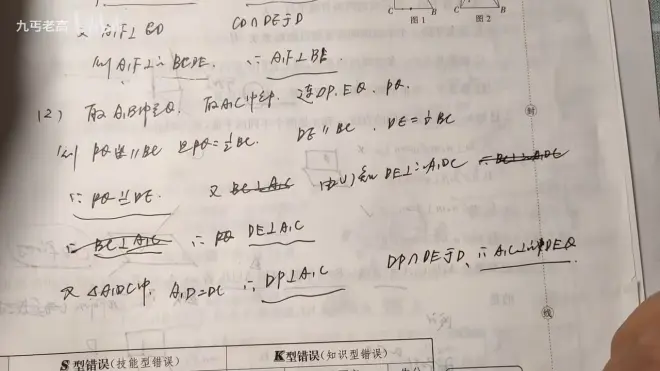 九丐老高
又 A₁F⊥CD   CD∩DE于D
C B C B
图1 图2
则 A₁F⊥面BCDE. ∴ A₁F⊥BE.
(2) 取 A₁B中点Q. 取A₁C中点P. 连DP.EQ.PQ.
则 PQ∥BC 且PQ=½BC. DE∥BC. DE=½BC
封
∴ PQ∥DE. 又 BC⊥A₁C 由(1)知 DE⊥面A₁DC ∴BC⊥A₁DC
∴ BC⊥A₁C ∴ PQ DE⊥A₁C
又 △A₁DC中. A₁D=DC ∴ DP⊥A₁C DP∩DE于D. ∴ A₁C⊥面PDEQ
线
S型错误(技能型错误) K型错误(知识型错误)